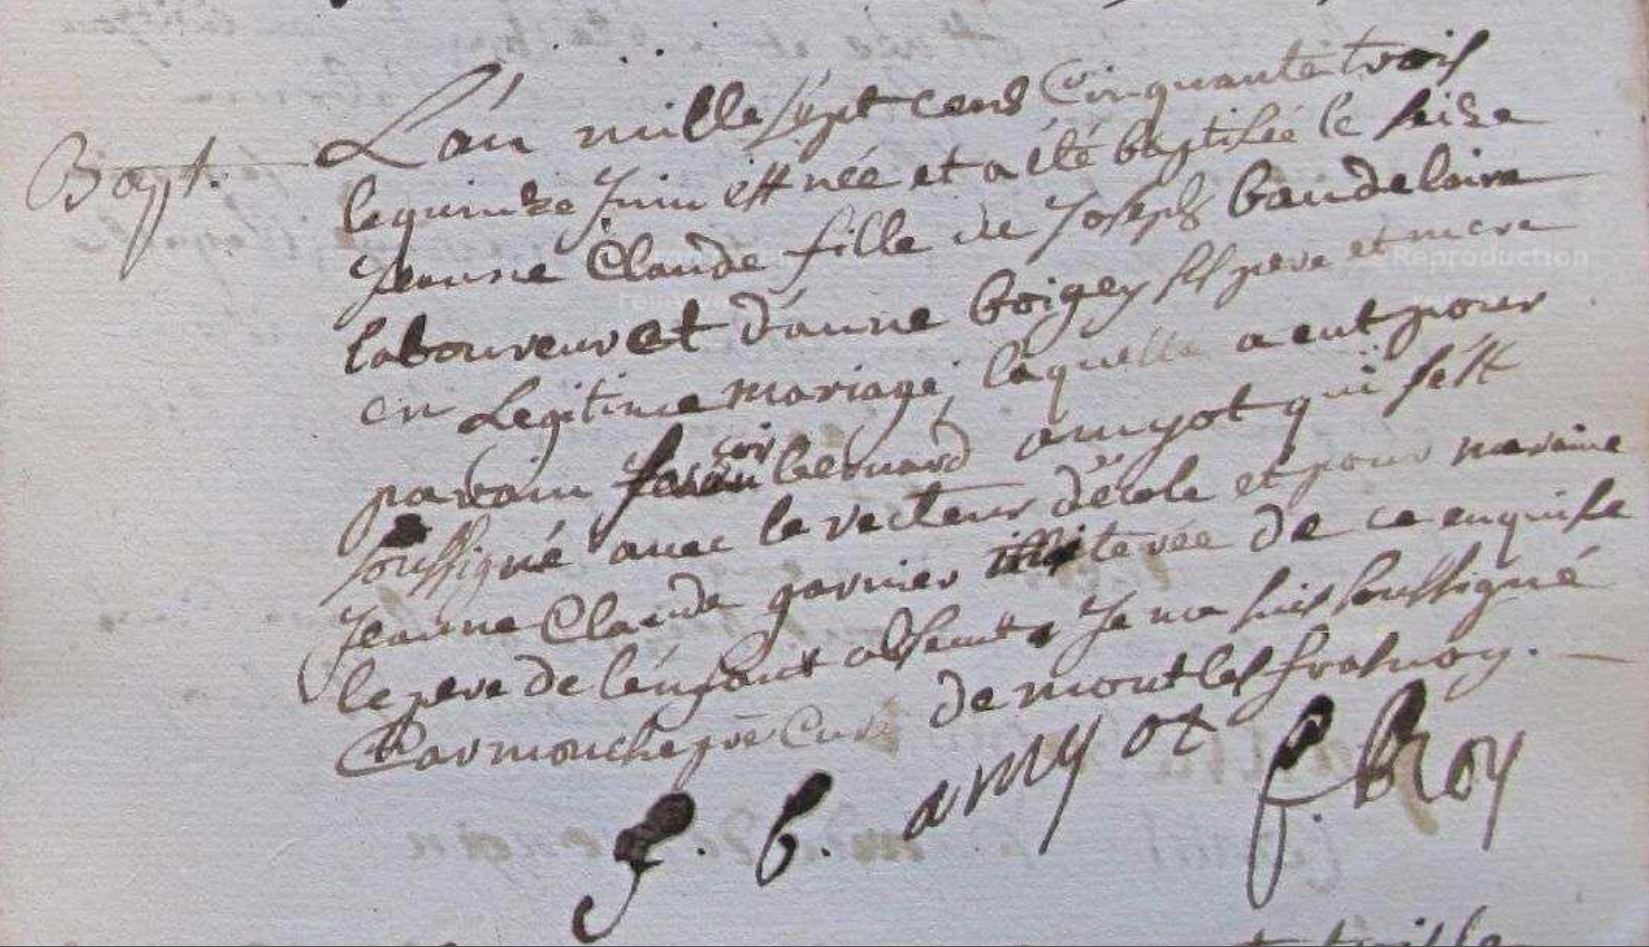 Bapt.
L'an mille sept cens Cinquante trois
le quinze Juin est née et a été baptisée le seize
Jeanne Claude fille de Joseph baudelaire
laboureur et d'anne boigey ses pere et mere
en Legitime mariage, laquelle a eut pour
parain bernard amyot qui s'est
soussigné avec le recteur d'école et pour maraine
Jeanne Claude garnier illiterée de ce enquise
le pere de l'enfant absent Je me suis soussigné
Carmouche pre Curé de mont les frasnoy.
f. b. amyot f Roy
Reproduction